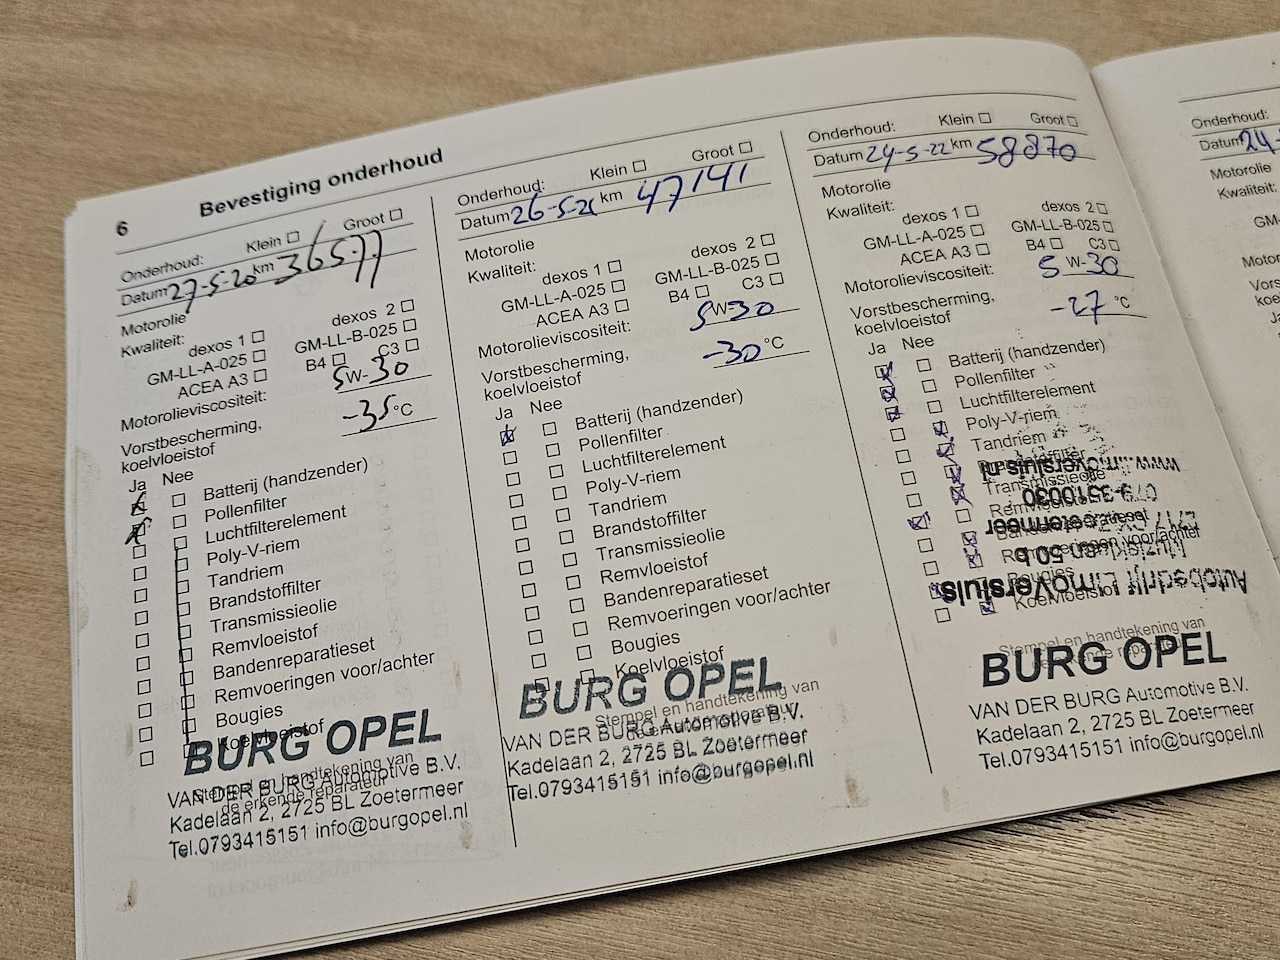 6
Bevestiging onderhoud
Onderhoud: Klein Groot
Datum 27-5-20 km 36577
Motorolie
Kwaliteit:
dexos 1 dexos 2
GM-LL-A-025 GM-LL-B-025
ACEA A3 B4 C3
Motorolieviscositeit: 5W-30
Vorstbescherming,
koelvloeistof -35 °C
Ja Nee
Batterij (handzender)
Pollenfilter
Luchtfilterelement
Poly-V-riem
Tandriem
Brandstoffilter
Transmissieolie
Remvloeistof
Bandenreparatieset
Remvoeringen voor/achter
Bougies
Koelvloeistof
Stempel en handtekening van
de erkende reparateur
BURG OPEL
VAN DER BURG Automotive B.V.
Kadelaan 2, 2725 BL Zoetermeer
Tel.0793415151 info@burgopel.nl
Onderhoud: Klein Groot
Datum 26-5-21 km 47141
Motorolie
Kwaliteit:
dexos 1 dexos 2
GM-LL-A-025 GM-LL-B-025
ACEA A3 B4 C3
Motorolieviscositeit: 5W-30
Vorstbescherming,
koelvloeistof -30 °C
Ja Nee
Batterij (handzender)
Pollenfilter
Luchtfilterelement
Poly-V-riem
Tandriem
Brandstoffilter
Transmissieolie
Remvloeistof
Bandenreparatieset
Remvoeringen voor/achter
Bougies
Koelvloeistof
Stempel en handtekening van
de erkende reparateur
BURG OPEL
VAN DER BURG Automotive B.V.
Kadelaan 2, 2725 BL Zoetermeer
Tel.0793415151 info@burgopel.nl
Onderhoud: Klein Groot
Datum 24-5-22 km 58870
Motorolie
Kwaliteit:
dexos 1 dexos 2
GM-LL-A-025 GM-LL-B-025
ACEA A3 B4 C3
Motorolieviscositeit: 5W-30
Vorstbescherming,
koelvloeistof -27 °C
Ja Nee
Batterij (handzender)
Pollenfilter
Luchtfilterelement
Poly-V-riem
Tandriem
Brandstoffilter
Transmissieolie
Remvloeistof
Bandenreparatieset
Remvoeringen voor/achter
Bougies
Koelvloeistof
Autobedrijf Limoversluis
50 b
Zoetermeer
079-3510030
Stempel en handtekening van
de erkende reparateur
BURG OPEL
VAN DER BURG Automotive B.V.
Kadelaan 2, 2725 BL Zoetermeer
Tel.0793415151 info@burgopel.nl
Onderhoud:
Datum 24-
Motorolie
Kwaliteit: